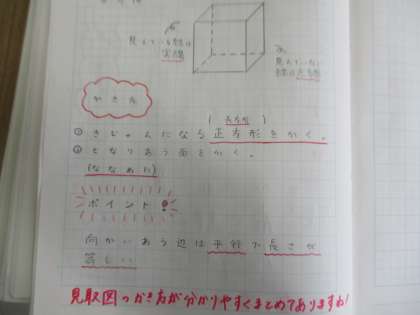 見えている線は
実線
見えていない
線は点線
かき方
(長方形)
① きじゅんになる正方形をかく。
② となりあう面をかく。
(ななめに)
ポイント!
向かいあう辺は平行で長さが
等しい
見取図のかき方が分かりやすくまとめてありますね!